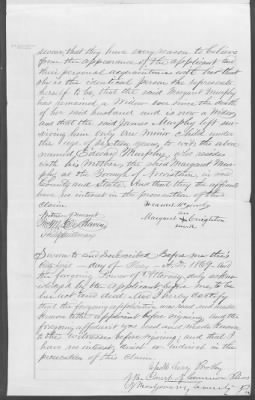 swear, that they have every reason to believe
from the appearance of the applicant and
their personal acquaintance with her that
she is the identical person she represents
herself to be, that the said Margaret Murphy
has remained a Widow ever since the death
of her said husband and is now a widow
and that the said James Murphy left sur-
viving him only one minor child under
the age of sixteen years, to wit: the above
named Edward Murphy, who resides
with his Mother, the said Margaret Mur-
phy at the Borough of Norristown, in said
County and State. And that they the affiants
have no interest in the prosecution of this
claim
Witness present
Margaret Creighton
her
mark
Sworn to and Subscribed before me this
day of A.D. 1869. And
the foregoing Power of Attorney duly acknow-
ledged by the applicant before me, to be
her act and deed. And I hereby Certify
that the foregoing application was read and made
known to the applicant before signing, and the
foregoing affidavit was read and made known
to the witnesses before signing; and that I
have no interest, direct or indirect in the
prosecution of this claim.
of the Court of Common Pleas
of Montgomery County Pa